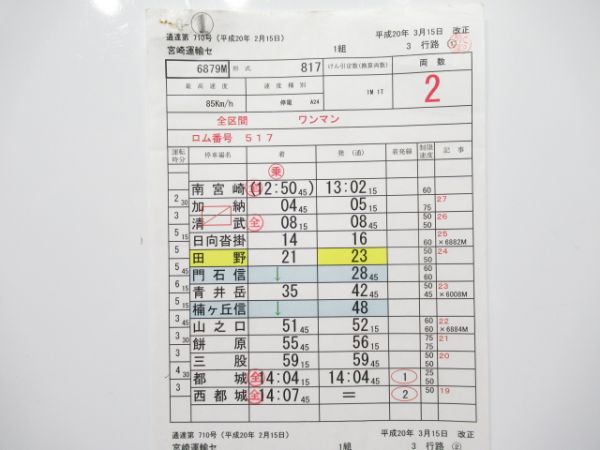 ①
通達第 710号(平成20年 2月15日)
平成20年 3月15日 改正
宮崎運輸セ
1組
3 行路 ①
6879M 形式 817
けん引定数(換算両数)
両数
最高速度 速度種別
85Km/h 停電 A24
1M 1T
2
全区間 ワンマン
ロム番号 517
運転時分 停車場名 着 発(通) 着発線 制限速度 記事
乗
南宮崎 (12:50 45) 13:02 15 60
2 30 27
加納 04 45 05 15 75
3 50 26
清武 全 08 15 08 45 50
5 25
日向沓掛 14 16 60 ×6882M
5 50 24
田野 21 23 60
5 60
門石信 ↓ 28 45 60
5 45 50 23
青井岳 35 42 45 45 ×6008M
5 15
楠ヶ丘信 ↓ 48
3 45 22
山之口 51 45 52 15 60 ×6884M
3 30 75 21
餅原 55 45 56 15
3 50 20
三股 59 15 59 45 50
4 30 25
都城 全 14:04 15 14:04 45 1 50
3 50 19
西都城 全 14:07 45 = 2
通達第 710号(平成20年 2月15日)
平成20年 3月15日 改正
宮崎運輸セ
1組
3 行路 ②